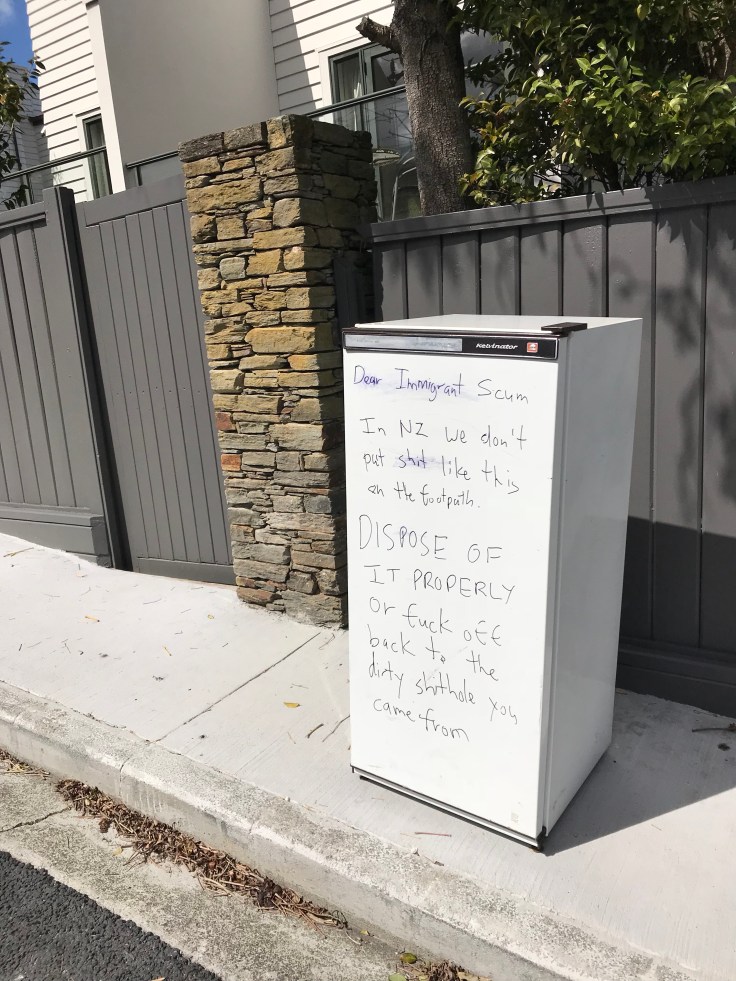 Kelvinator
Dear Immigrant Scum
In NZ we don't
put shit like this
on the footpath.
DISPOSE OF
IT PROPERLY
or fuck off
back to the
dirty shithole you
came from